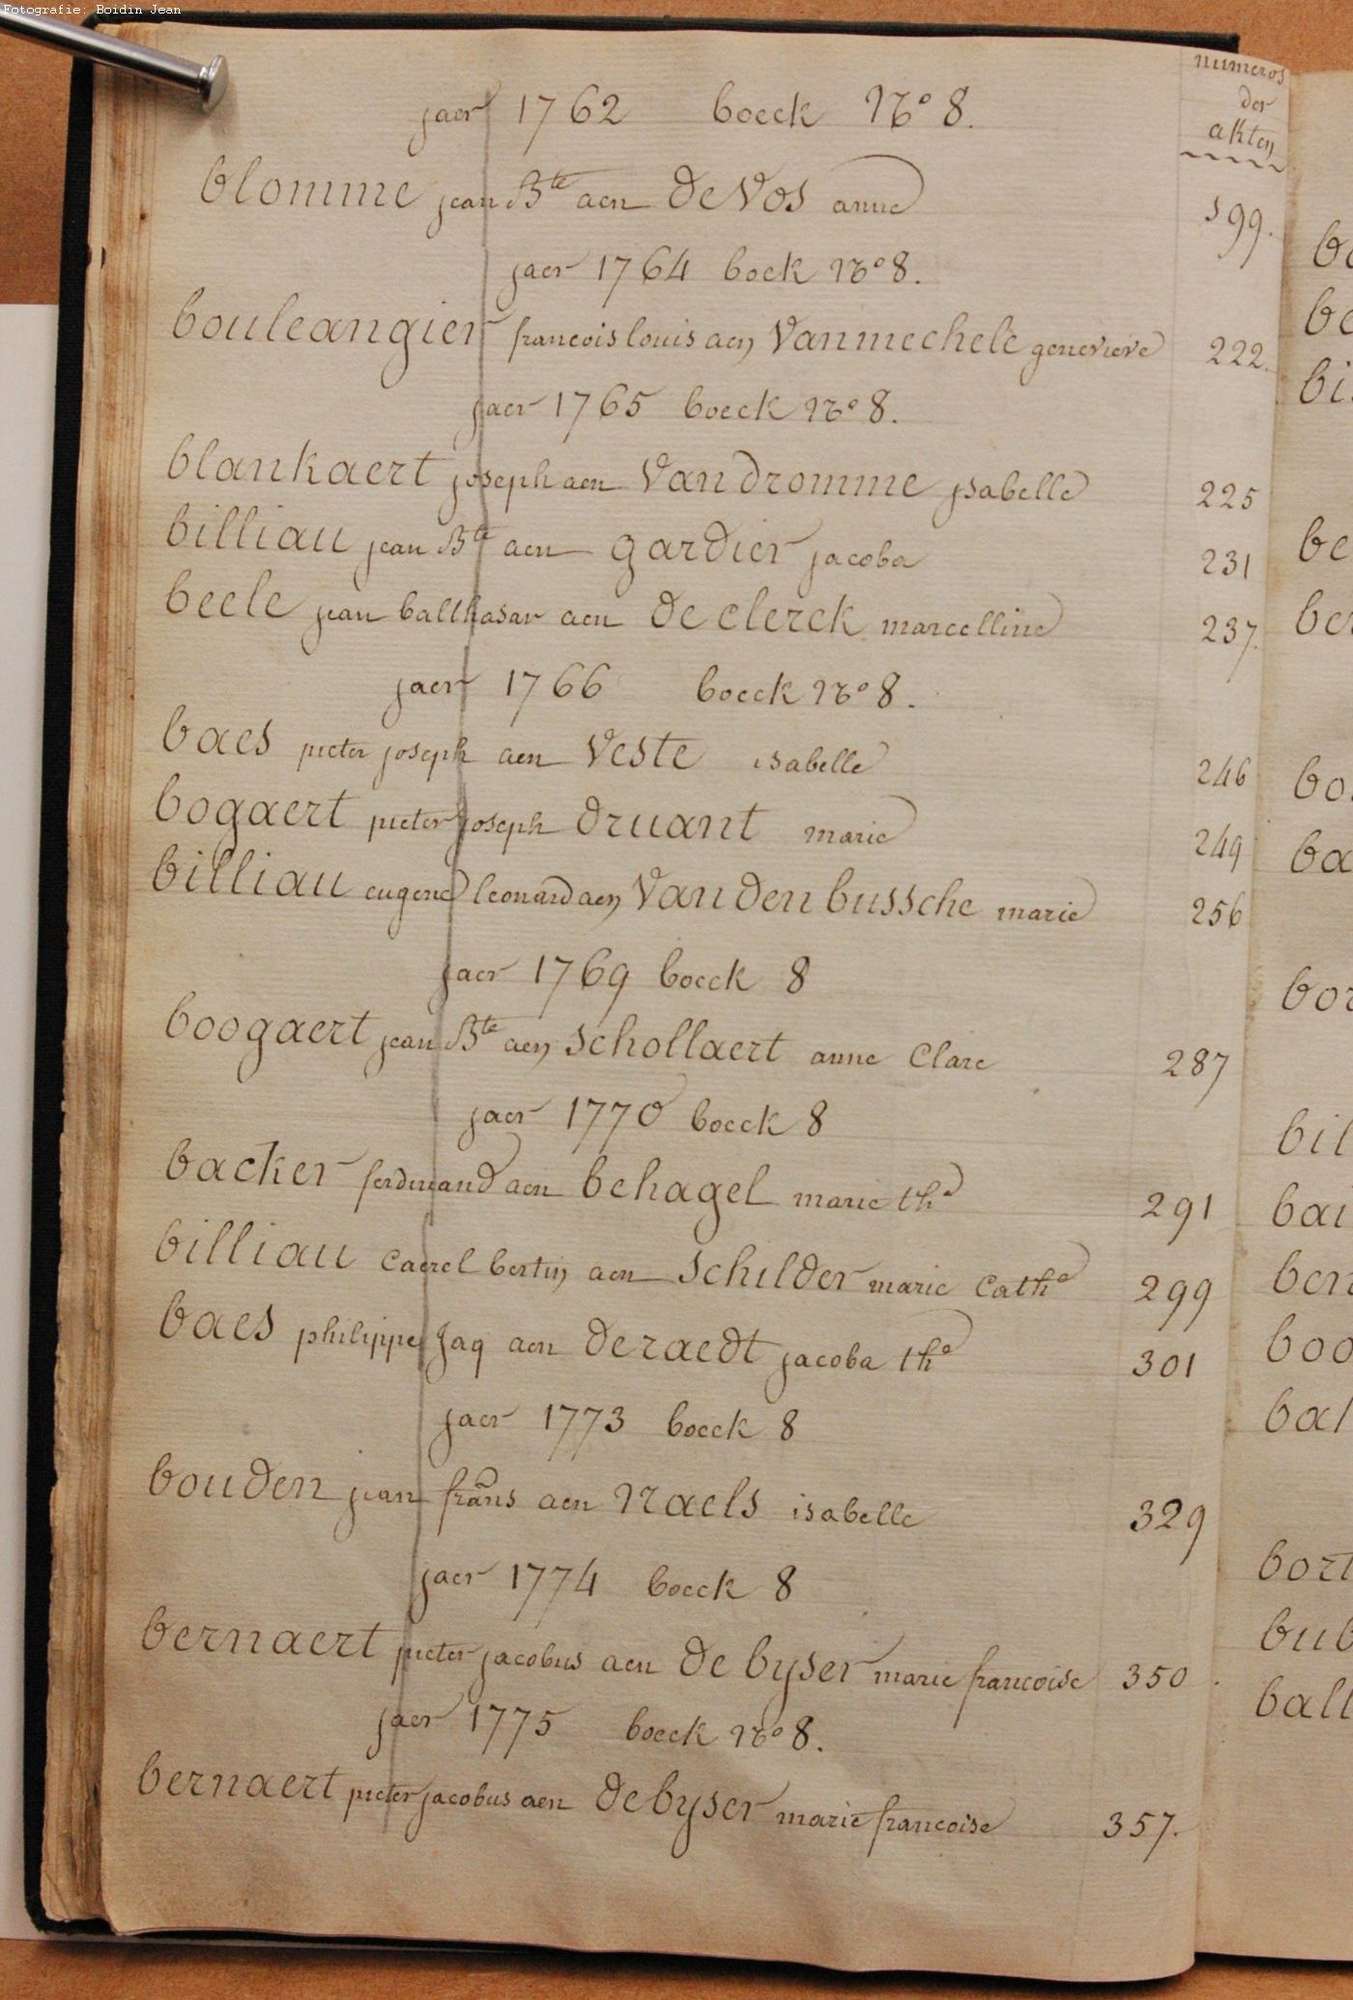 Fotografie: Boidin Jean
numeros
der
akten
jaer 1762 boeck No 8.
blomme jean Bte aen De Vos anne 199.
jaer 1764 boek No 8.
bouleangier francois louis aen Vanmechele genevieve 222.
jaer 1765 boeck No 8.
blankaert joseph aen Vandromme jsabelle 225
billiau jean Bte aen gardier jacoba 231
beele jean balthasar aen De clerck marcelline 237.
jaer 1766 boeck No 8.
baes pieter joseph aen Veste isabelle 246
bogaert pieter joseph Druant marie 249
billiau eugene leonard aen Vanden bussche marie 256
jaer 1769 boeck 8
boogaert jean Bte aen schollaert anne Clare 287
jaer 1770 boeck 8
backer ferdinand aen behagel marie the 291
billiau Caerel bertin aen schilder marie Cathe 299
baes philippe Jaq aen Deraedt jacoba the 301
jaer 1773 boeck 8
bouden jean frans aen Naels isabelle 329
jaer 1774 boeck 8
bernaert pieter jacobus aen De byser marie francoise 350
jaer 1775 boeck No 8.
bernaert pieter jacobus aen Debyser marie francoise 357.
bo
be
be
bo
ba
bor
bil
bai
boo
bal
bort
bub
ball